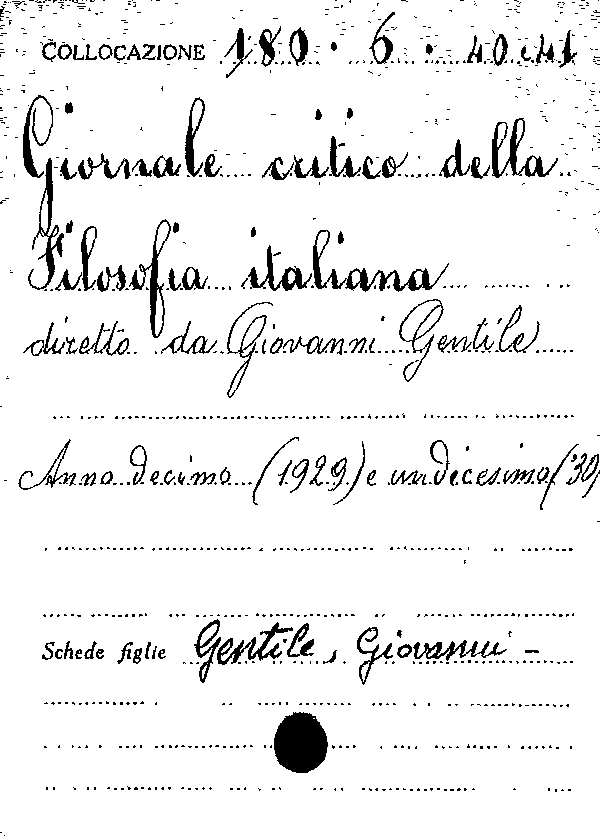 COLLOCAZIONE 180 . 6 . 40 e 41
Giornale critico della
Filosofia italiana
diretto da Giovanni Gentile
Anno decimo (1929) e undicesimo ('30)
Schede figlie Gentile, Giovanni -